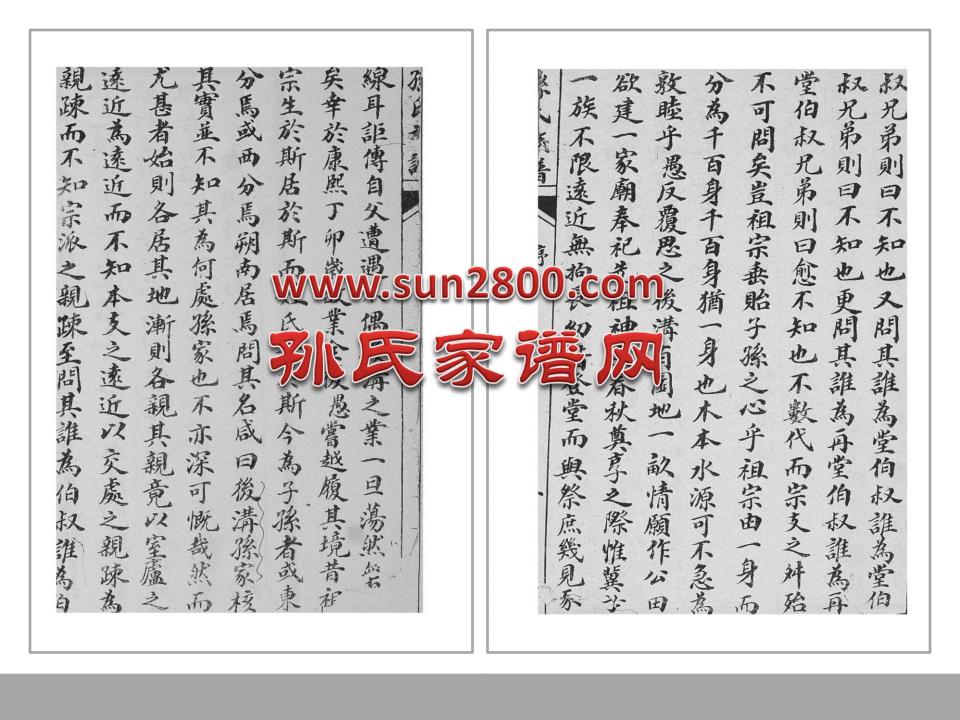 孫氏族譜
線耳詎傳自父遭遇不偶溝之業一旦蕩然
矣幸於康熙丁卯歲業愚嘗越履其境昔祖
宗生於斯居於斯而氏斯今為子孫者或東
分焉或西分焉朔南居焉問其名咸曰後溝孫家核
其實並不知其為何處孫家也不亦深可慨哉然而
尤甚者始則各居其地漸則各親其親竟以室廬之
遠近為遠近而不知本支之遠近以交處之親疎為
親疎而不知宗派之親疎至問其誰為伯叔誰為伯
叔兄弟則曰不知也又問其誰為堂伯叔誰為堂伯
叔兄弟則曰不知也更問其誰為再堂伯叔誰為再
堂伯叔兄弟則曰愈不知也不數代而宗支之舛殆
不可問矣豈祖宗垂貽子孫之心乎祖宗由一身而
分為千百身千百身猶一身也木本水源可不急為
敦睦乎愚反覆思之後溝有園地一畝情願作公田
欲建一家廟奉祀先祖神春秋奠享之際惟冀
一族不限遠近無拘長幼登堂而與祭庶幾見
孫氏族譜
序
www.sun2800.com
孙氏家谱网